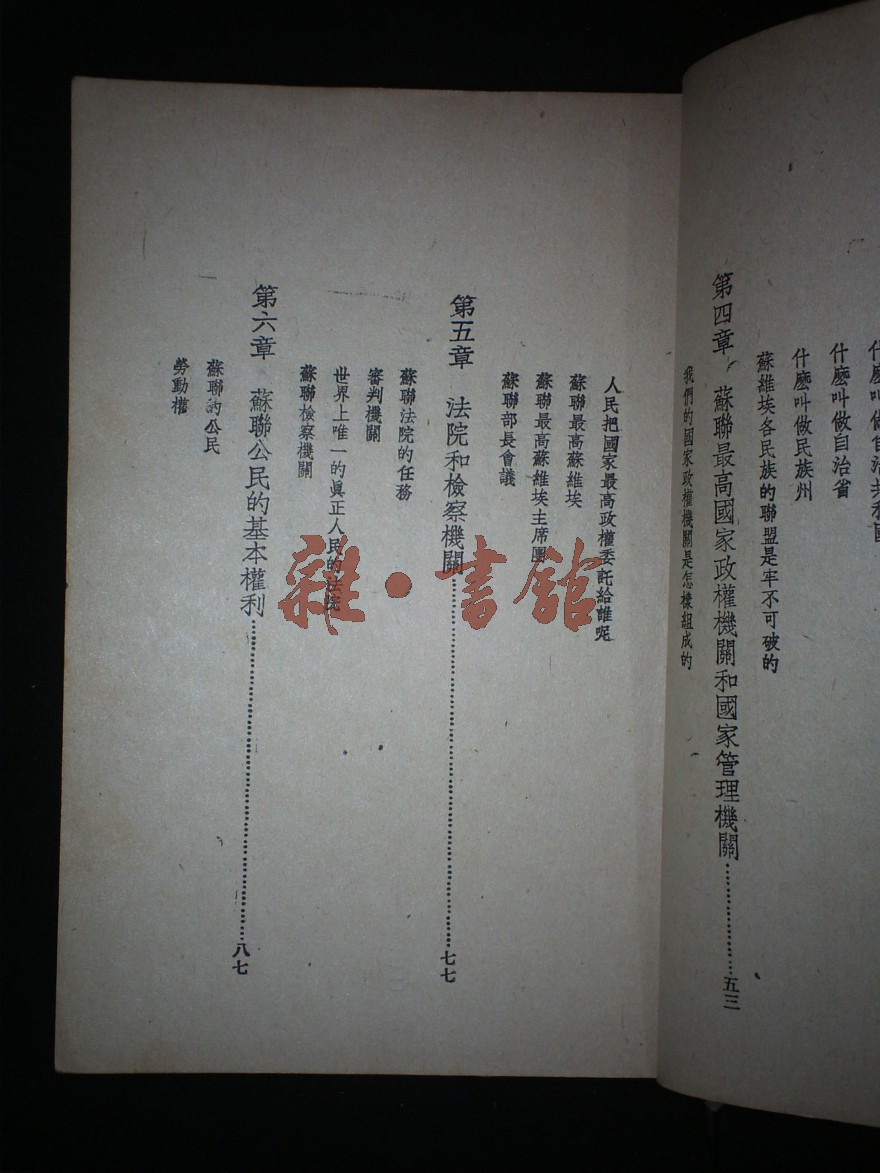 什麼叫做自治共和國
什麼叫做自治省
什麼叫做民族州
蘇維埃各民族的聯盟是牢不可破的
第四章 蘇聯最高國家政權機關和國家管理機關……………五三
我們的國家政權機關是怎樣組成的
人民把國家最高政權委託給誰呢
蘇聯最高蘇維埃
蘇聯最高蘇維埃主席團
蘇聯部長會議
第五章 法院和檢察機關……………七七
蘇聯法院的任務
審判機關
世界上唯一的眞正人民的法院
蘇聯檢察機關
第六章 蘇聯公民的基本權利……………八七
蘇聯的公民
勞動權
雜·書館